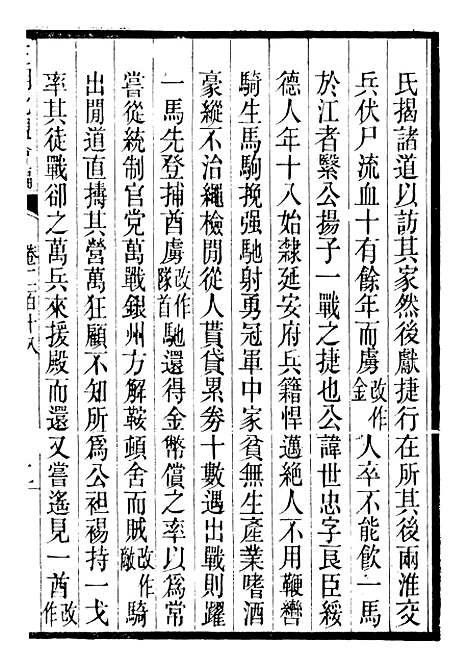 氏揭諸道以訪其家然後獻捷行在所其後兩淮交
兵伏尸流血十有餘年而虜改作金人卒不能飲一馬
於江者緊公揚子一戰之捷也公諱世忠字良臣綏
德人年十八始隸延安府兵籍悍邁絕人不用鞭轡
騎生馬駒挽强馳射勇冠軍中家貧無生產業嗜酒
豪縱不治繩檢閒從人貰貸累劵十數遇出戰則躍
一馬先登捕酋虜改作隊首馳還得金幣償之率以爲常
嘗從統制官党萬戰銀州方解鞍頓舍而賊改作敵騎
出閒道直擣其營萬狂顧不知所爲公袒裼持一戈
率其徒戰卻之萬兵來援殿而還又嘗遙見一酋改作
卷二百十八